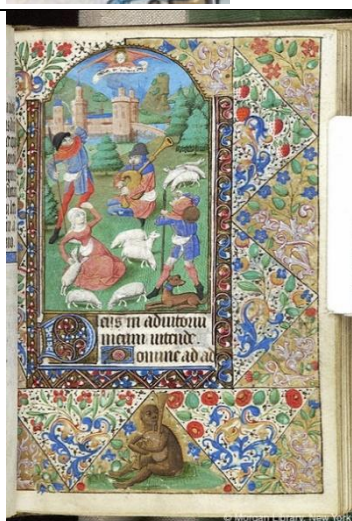 Deus in adiutoriu
meum intende.
Domine ad ad
© Morgan Library, New York